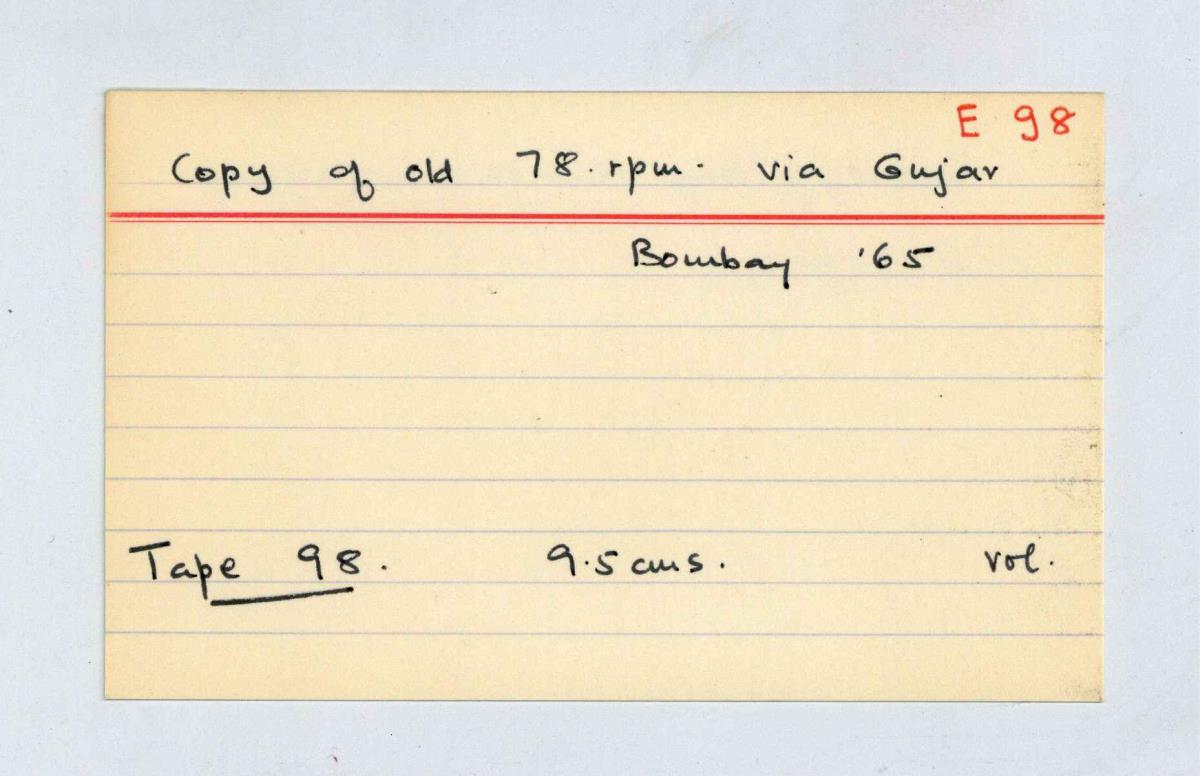 E 98
Copy of old 78. rpm. via Gujar
Bombay '65
Tape 98. 9.5 cms. vol.